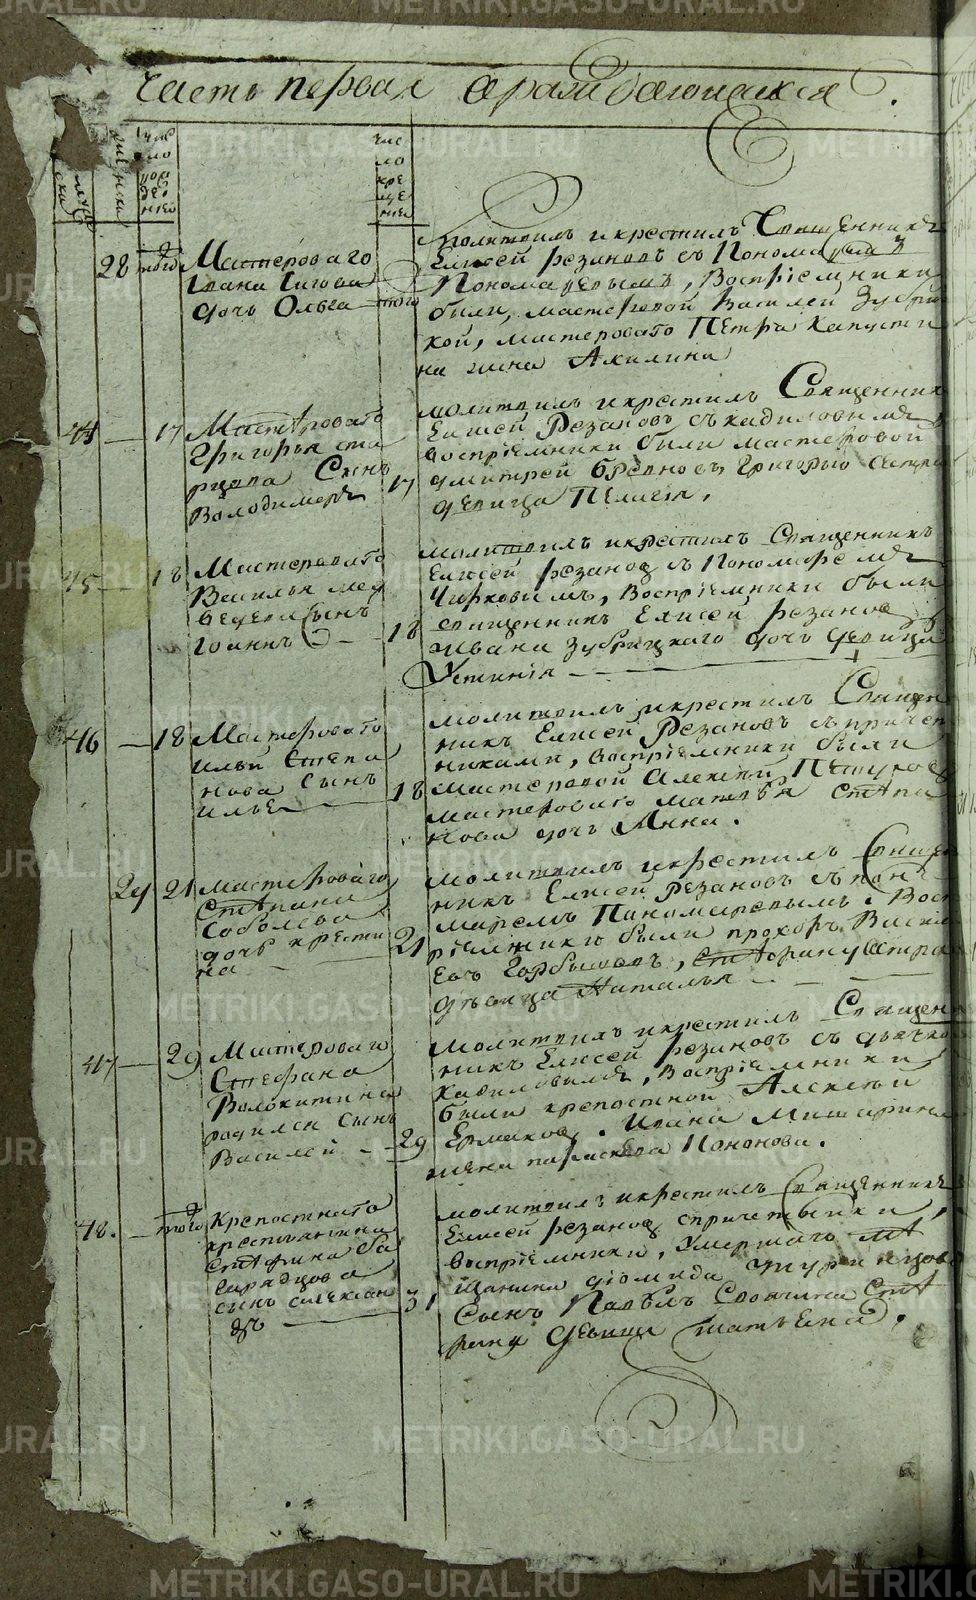 Часть первая о раждающихся.
мужеска
женска
число рождения
число крещения
28 того Мастероваго
Ивана Чигова
дочь Ольга того
молитвилъ и крестилъ Священникъ
Елисей Резановъ съ Пономаремъ
Пономаревымъ, Воспрiемники
были, мастеровой Василей Зубриц
кой, мастероваго Петра Капусти
на жена Акилина
44 17 Мастероваго
Григорья ста
рцова Сынъ
Володимеръ 17
молитвилъ и крестилъ Священник
Елисей Резановъ съ кадиловымъ
воспрiемники были мастеровой
дмитрей бревновъ, григорью сестра
девица Пелагiя.
45 18 Мастероваго
Василья мед
ведева сынъ
Iоаннъ 18
молитвилъ и крестилъ Священникъ
Елисей резанов с Пономаремъ
Чирковымъ, воспрiемники были
священникъ Елисей резанов
Ивана Зубрицкаго дочь девица
Устинiя
46 18 Мастероваго
ильи Степа
нова Сынъ
илья 18
молитвилъ и крестилъ Священ
никъ Елисей Резановъ съ причет
никами, воспрiемники были
мастеровой Алексей Петухов
мастероваго матвея Степа
нова дочь Анна.
29 21 мастероваго
Степана
Соболева
дочь крести
на 21
молитвилъ и крестилъ Священ
никъ Елисей Резановъ съ поно
маремъ Пономаревымъ. Восп
рiемники были прохоръ Василь
евъ Горбуновъ, Стефану сестра
девица Наталья
47 29 Мастероваго
Стефана
Волокитина
родился сынъ
Василей 29
молитвилъ и крестилъ Священ
никъ Елисей резановъ съ дьячко
кадиловымъ, воспрiемники
были крепостной Алексей
Ермаков. Ивана Мишарина
жена параскева Кононова.
48. того Крепостнаго
крестьянина
Стефана ба
гарядцова
сынъ алексан
дръ 31
молитвилъ и крестилъ Священникъ
Елисей резанов с причетники,
воспрiемники, умершаго ме
щанина дiомида Туринцова
Сынъ Павелъ Стефа
ну девица татьяна.